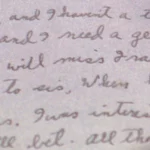 and I haven't a t
and I need a ge
will miss Gra
to sis, When
s. I was interes
ll bet. all tha